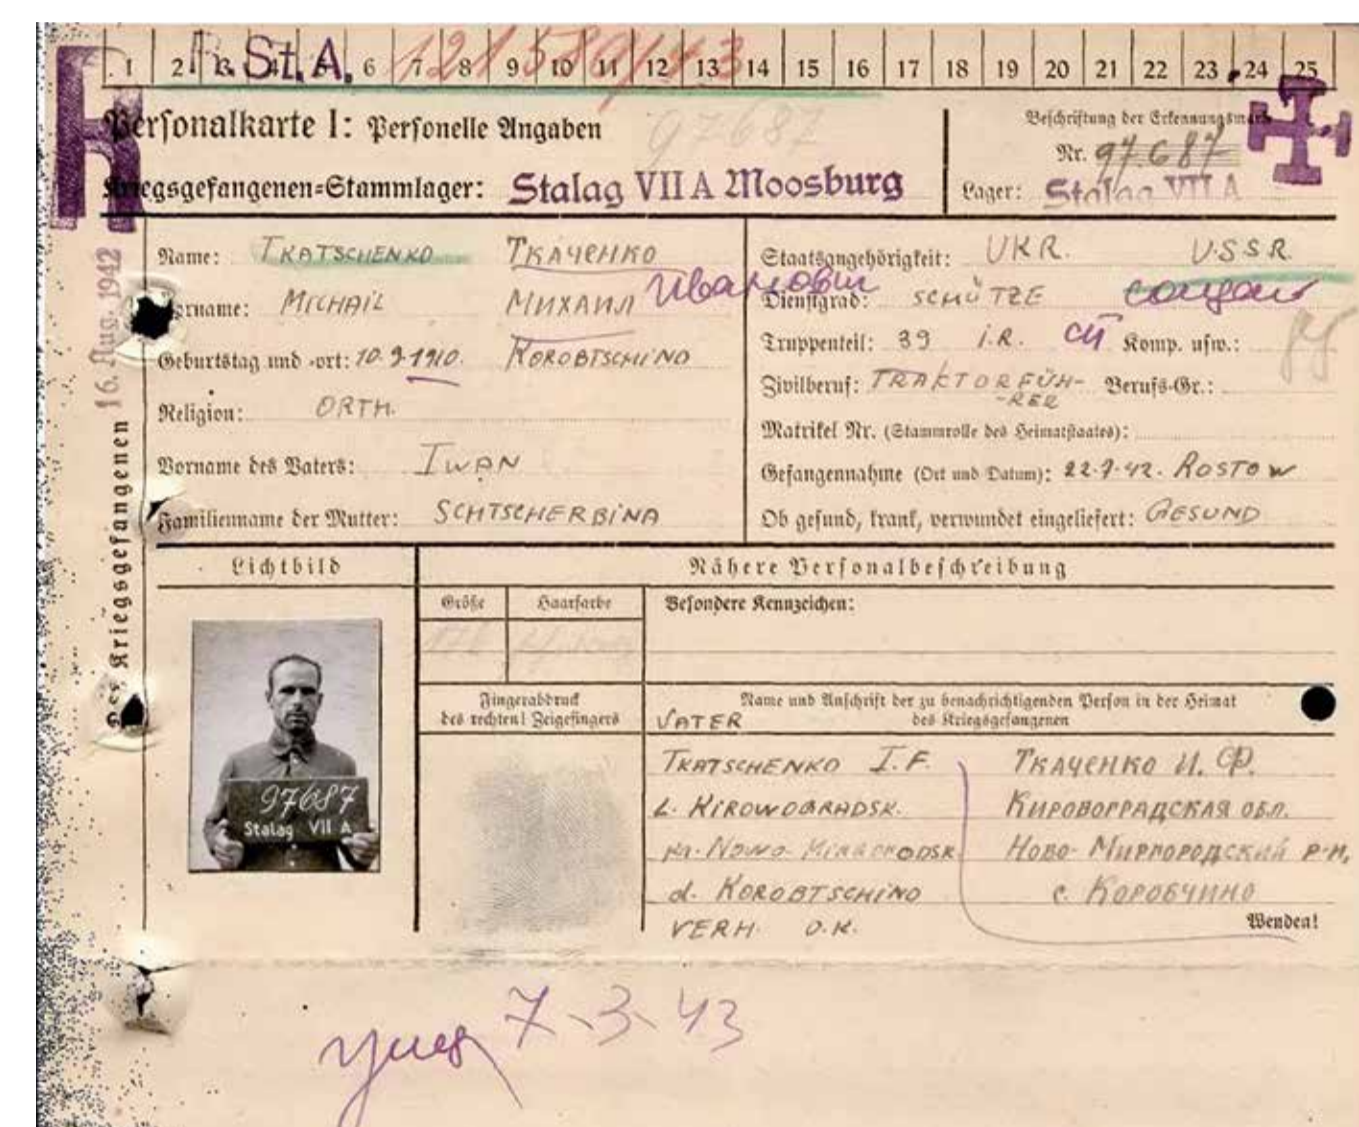 1 2 3 4 5 6 7 8 9 10 11 12 13 14 15 16 17 18 19 20 21 22 23 24 25
St.A. 121589/43
Personalkarte I: Personelle Angaben
97687
Kriegsgefangenen-Stammlager: Stalag VII A Moosburg
Beschriftung der Erkennungsmarke
Nr. 97687
Lager: Stalag VII A
16. Aug. 1942
des Kriegsgefangenen
Name: TKATSCHENKO ТКАЧЕНКО
Vorname: MICHAIL МИХАИЛ Иванович
Geburtstag und -ort: 10.9.1910. KOROBTSCHINO
Religion: ORTH.
Vorname des Vaters: IWAN
Familienname der Mutter: SCHTSCHERBINA
Staatsangehörigkeit: UKR. U.S.S.R.
Dienstgrad: SCHÜTZE солдат
Truppenteil: 39 I.R. сп Komp. usw.:
Zivilberuf: TRAKTORFÜH- Berufs-Gr.:
-RER
Matrikel Nr. (Stammrolle des Heimatstaates):
Gefangennahme (Ort und Datum): 22.7.42. ROSTOW
Ob gesund, krank, verwundet eingeliefert: GESUND
Lichtbild
Nähere Personalbeschreibung
Größe Haarfarbe Besondere Kennzeichen:
176
97687
Stalag VII A
Fingerabdruck
des rechten! Zeigefingers
Name und Anschrift der zu benachrichtigenden Person in der Heimat
des Kriegsgefangenen
VATER
TKATSCHENKO I.F. ТКАЧЕНКО И.Ф.
L. KIROWOGRADSK. КИРОВОГРАДСКАЯ ОБЛ.
NOWO-MIRGORODSK НОВО-МИРГОРОДСКИЙ Р-Н,
d. KOROBTSCHINO с. КОРОБЧИНО
VERH. O.K.
Wenden!
7-3-43